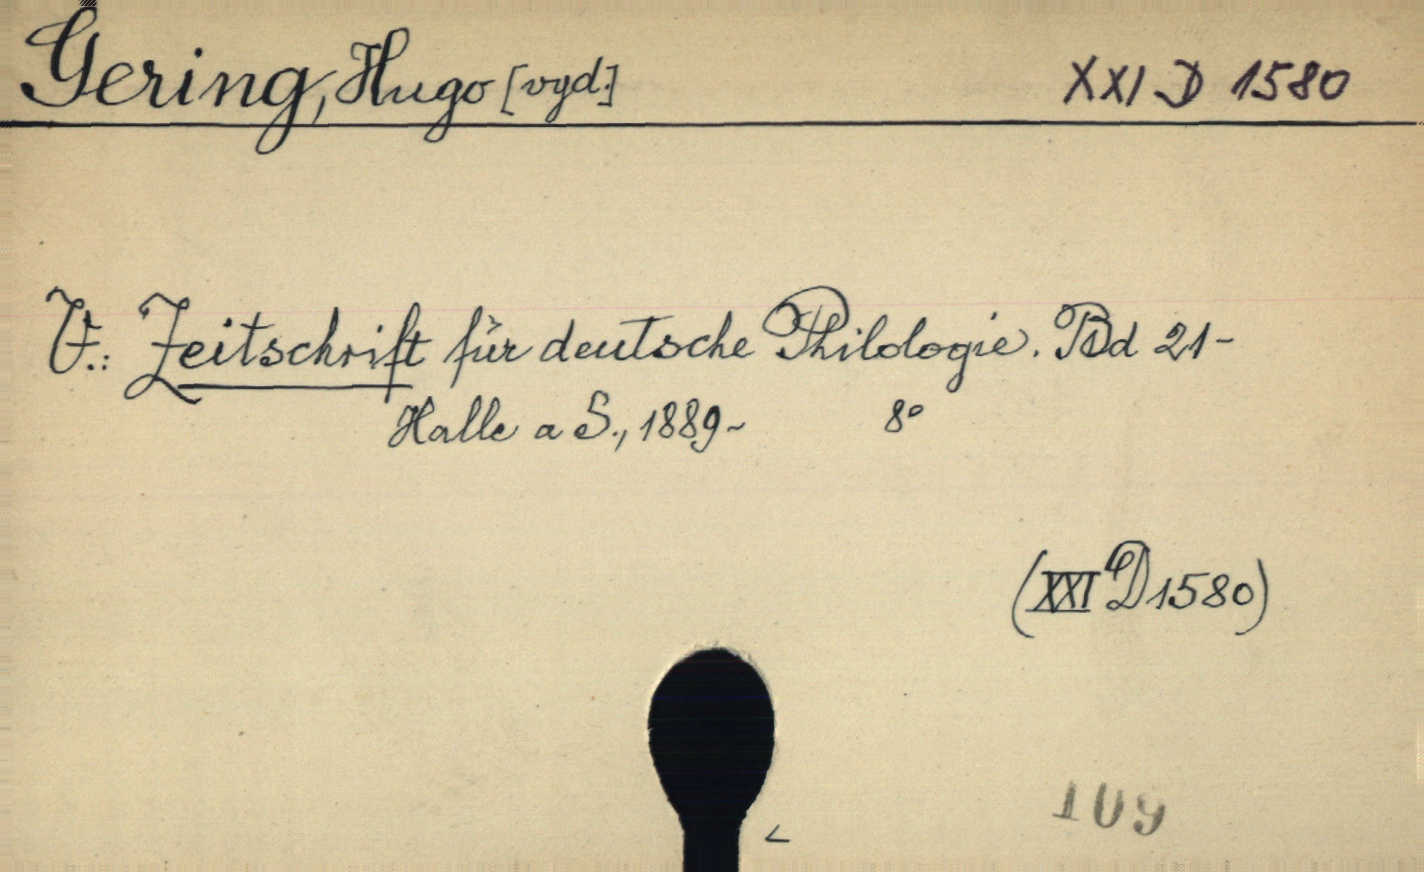 Gering, Hugo [vyd.] XXI D 1580
V.: Zeitschrift für deutsche Philologie. Bd 21-
Halle a S., 1889- 8°
(XXI D 1580)
109